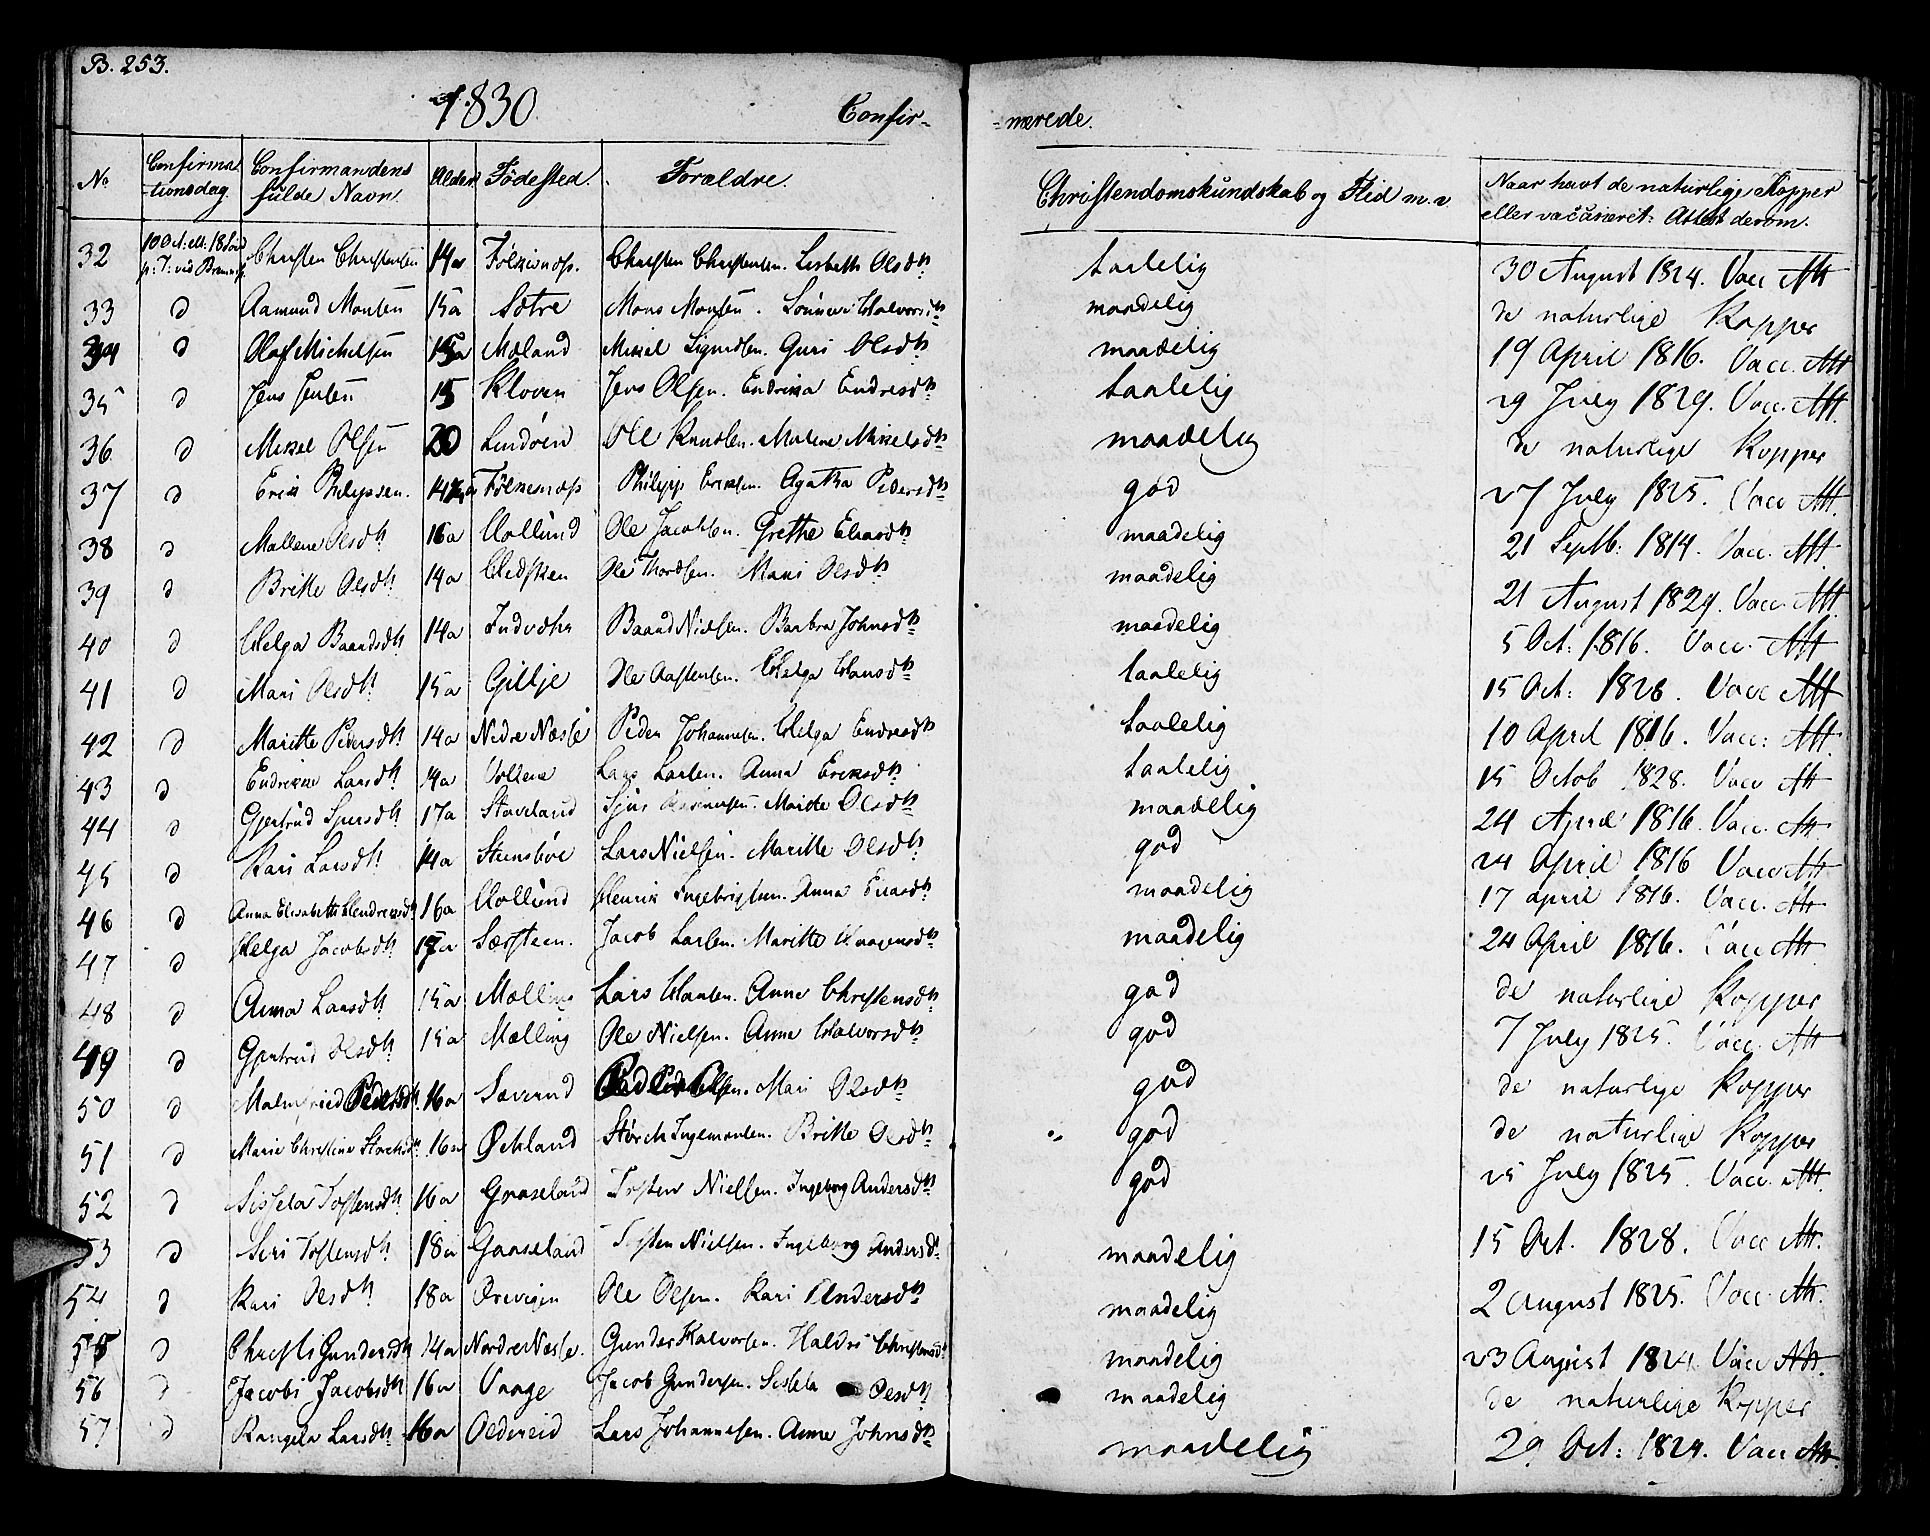 B. 253.
1830.
Confir-
-merede.
No
Confirma-
-tionsdag.
Confirmandens
fulde Navn.
Alder
Fødested.
Forældre.
Christendomskundskab og Flid m. v.
Naar havt de naturlige Kopper
eller vaccineret: Attest derom.
32 10 Oct: 18 Christen Christensen 14a Christen Christensen. Lisbeth Olsdtr taalelig 30 August 1824. Vacc Att
33 d Aamund Monsen 15a Sætre Mons Monsen. maadelig de naturlige Kopper
34 d Olaf Michelsen 15a Mæland Mikel Sigurdsen. Guri Olsdtr maadelig 19 April 1816. Vacc. Att
35 d Jens Jensen 15 Kloven Jens Olsen. Endrika Endresdtr taalelig 29 July 1829. Vacc. Att.
36 d Mikel Olsen 20 Lindøen Ole Knudsen. Malene Mikelsdtr maadelig de naturlige Kopper
37 d Erik Philipsen. 14 Philipp Eriksen. Agatha Pedersdtr god 27 July 1825. Vacc Att.
38 d Mallene Olsdtr 16a Hollund Ole Jacobsen. Grethe Eliasdtr maadelig 21 Septb: 1814. Vacc. Att.
39 d Britte Olsdtr 14a Ole Thordsen. Mari Olsdtr maadelig 21 August 1829. Vacc. Att
40 d Helga Baardsdtr 14a Baard Nielsen. Barbra Johnsdtr maadelig 5 Oct: 1816. Vacc. Att
41 d Mari Olsdtr 15a Gillje Ole Aastensen. Helga Hansdtr taalelig 15 Oct: 1828. Vacc Att
42 d Maritte Pedersdtr 14a Nedre Næsse Peder Johannesen. Helga Endresdtr taalelig 10 April 1816. Vacc: Att.
43 d Endrikke Larsdtr 14a Lars Larsen. Anna Eriksdtr taalelig 15 Octob 1828. Vacc Att
44 d Gjertrud Sjursdtr 17a Staveland Sjur Maritte Olsdtr maadelig 24 April 1816. Vacc. Att
45 d Kari Larsdtr 14a Steensbøe Lars Nielsen. Maritte Olsdtr god 24 April 1816 Vacc Att
46 d Anna Elisabeth Hendriksdtr 16a Hollund Henrik Ingebrigtsen. Anna Elliasdtr maadelig 17 april 1816. Vacc. Att
47 d Helga Jacobsdtr 17a Særsteen. Jacob Larsen. Maritte Haagensdtr maadelig 24 April 1816. Vacc Att
48 d Anna Larsdtr 15a Mælling Lars Hansen. Anna Christensdtr god de naturlige Kopper
49 d Gjertrud Olsdtr 15a Mælling Ole Nielsen. Anna Halvorsdtr god 7 July 1825. Vacc. Att
50 d Malmfried Pedersdtr. 16a Sævrund Mari Olsdtr god de naturlige Kopper
51 d Marie Christine Størksdtr 16a Økland Størck Ingemonsen. Britte Olsdtr god de naturlige Kopper
52 d Sissela Tostensdtr 16a Graaseland Tosten Nielsen. Ingeborg Andersdtr god 25 July 1825. Vacc. Att.
53 d Siri Tostensdtr 18a Graaseland Tosten Nielsen. Ingeborg Andersdtr maadelig 15 Oct. 1828. Vacc Att.
54 d Kari Olsdtr 18a Ørevigen Ole Olsen. Kari Andersdtr maadelig 2 august 1825. Vacc. Att.
55 d Christi Gundersdtr 14a Nordre Næsse. Gunder Halvorsen. Haldis Christensdtr maadelig 23 August 1824. Vacc Att.
56 d Jacobi Jacobsdtr 16a Vaage Jacob Gundersen. Sissela Olsdtr maadelig de naturlige Kopper
57 d Rangela Larsdtr 16a Oldereid Lars Johannesen. Anna Johnsdtr maadelig 29 Oct: 1824. Vacc Att.